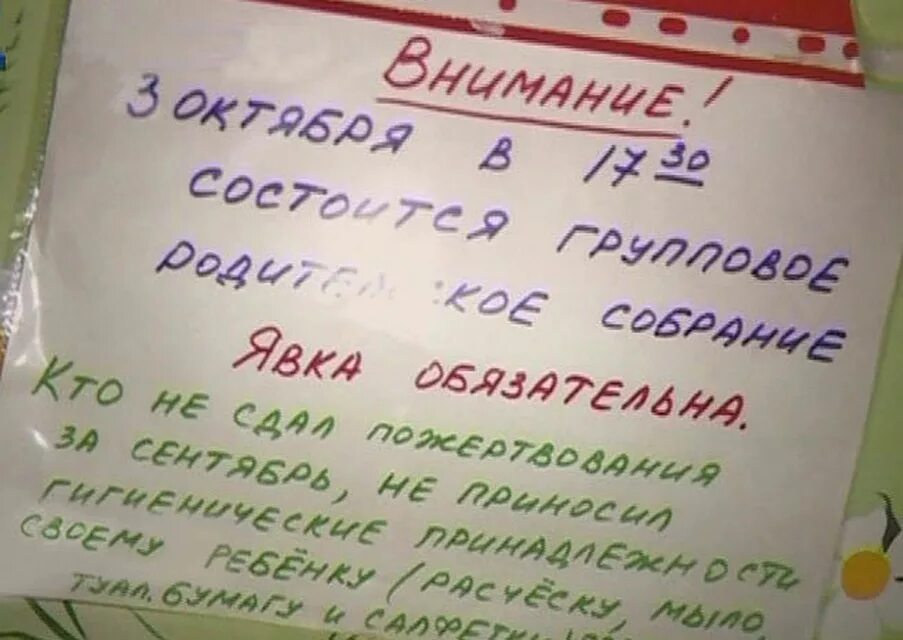 Внимание!
3 октября в 17 30
состоится групповое
родительское собрание
Явка обязательна.
Кто не сдал пожертвования
за сентябрь, не приносил
гигиенические принадлежности
своему ребёнку (расчёску, мыло
туал. бумагу и салфетки